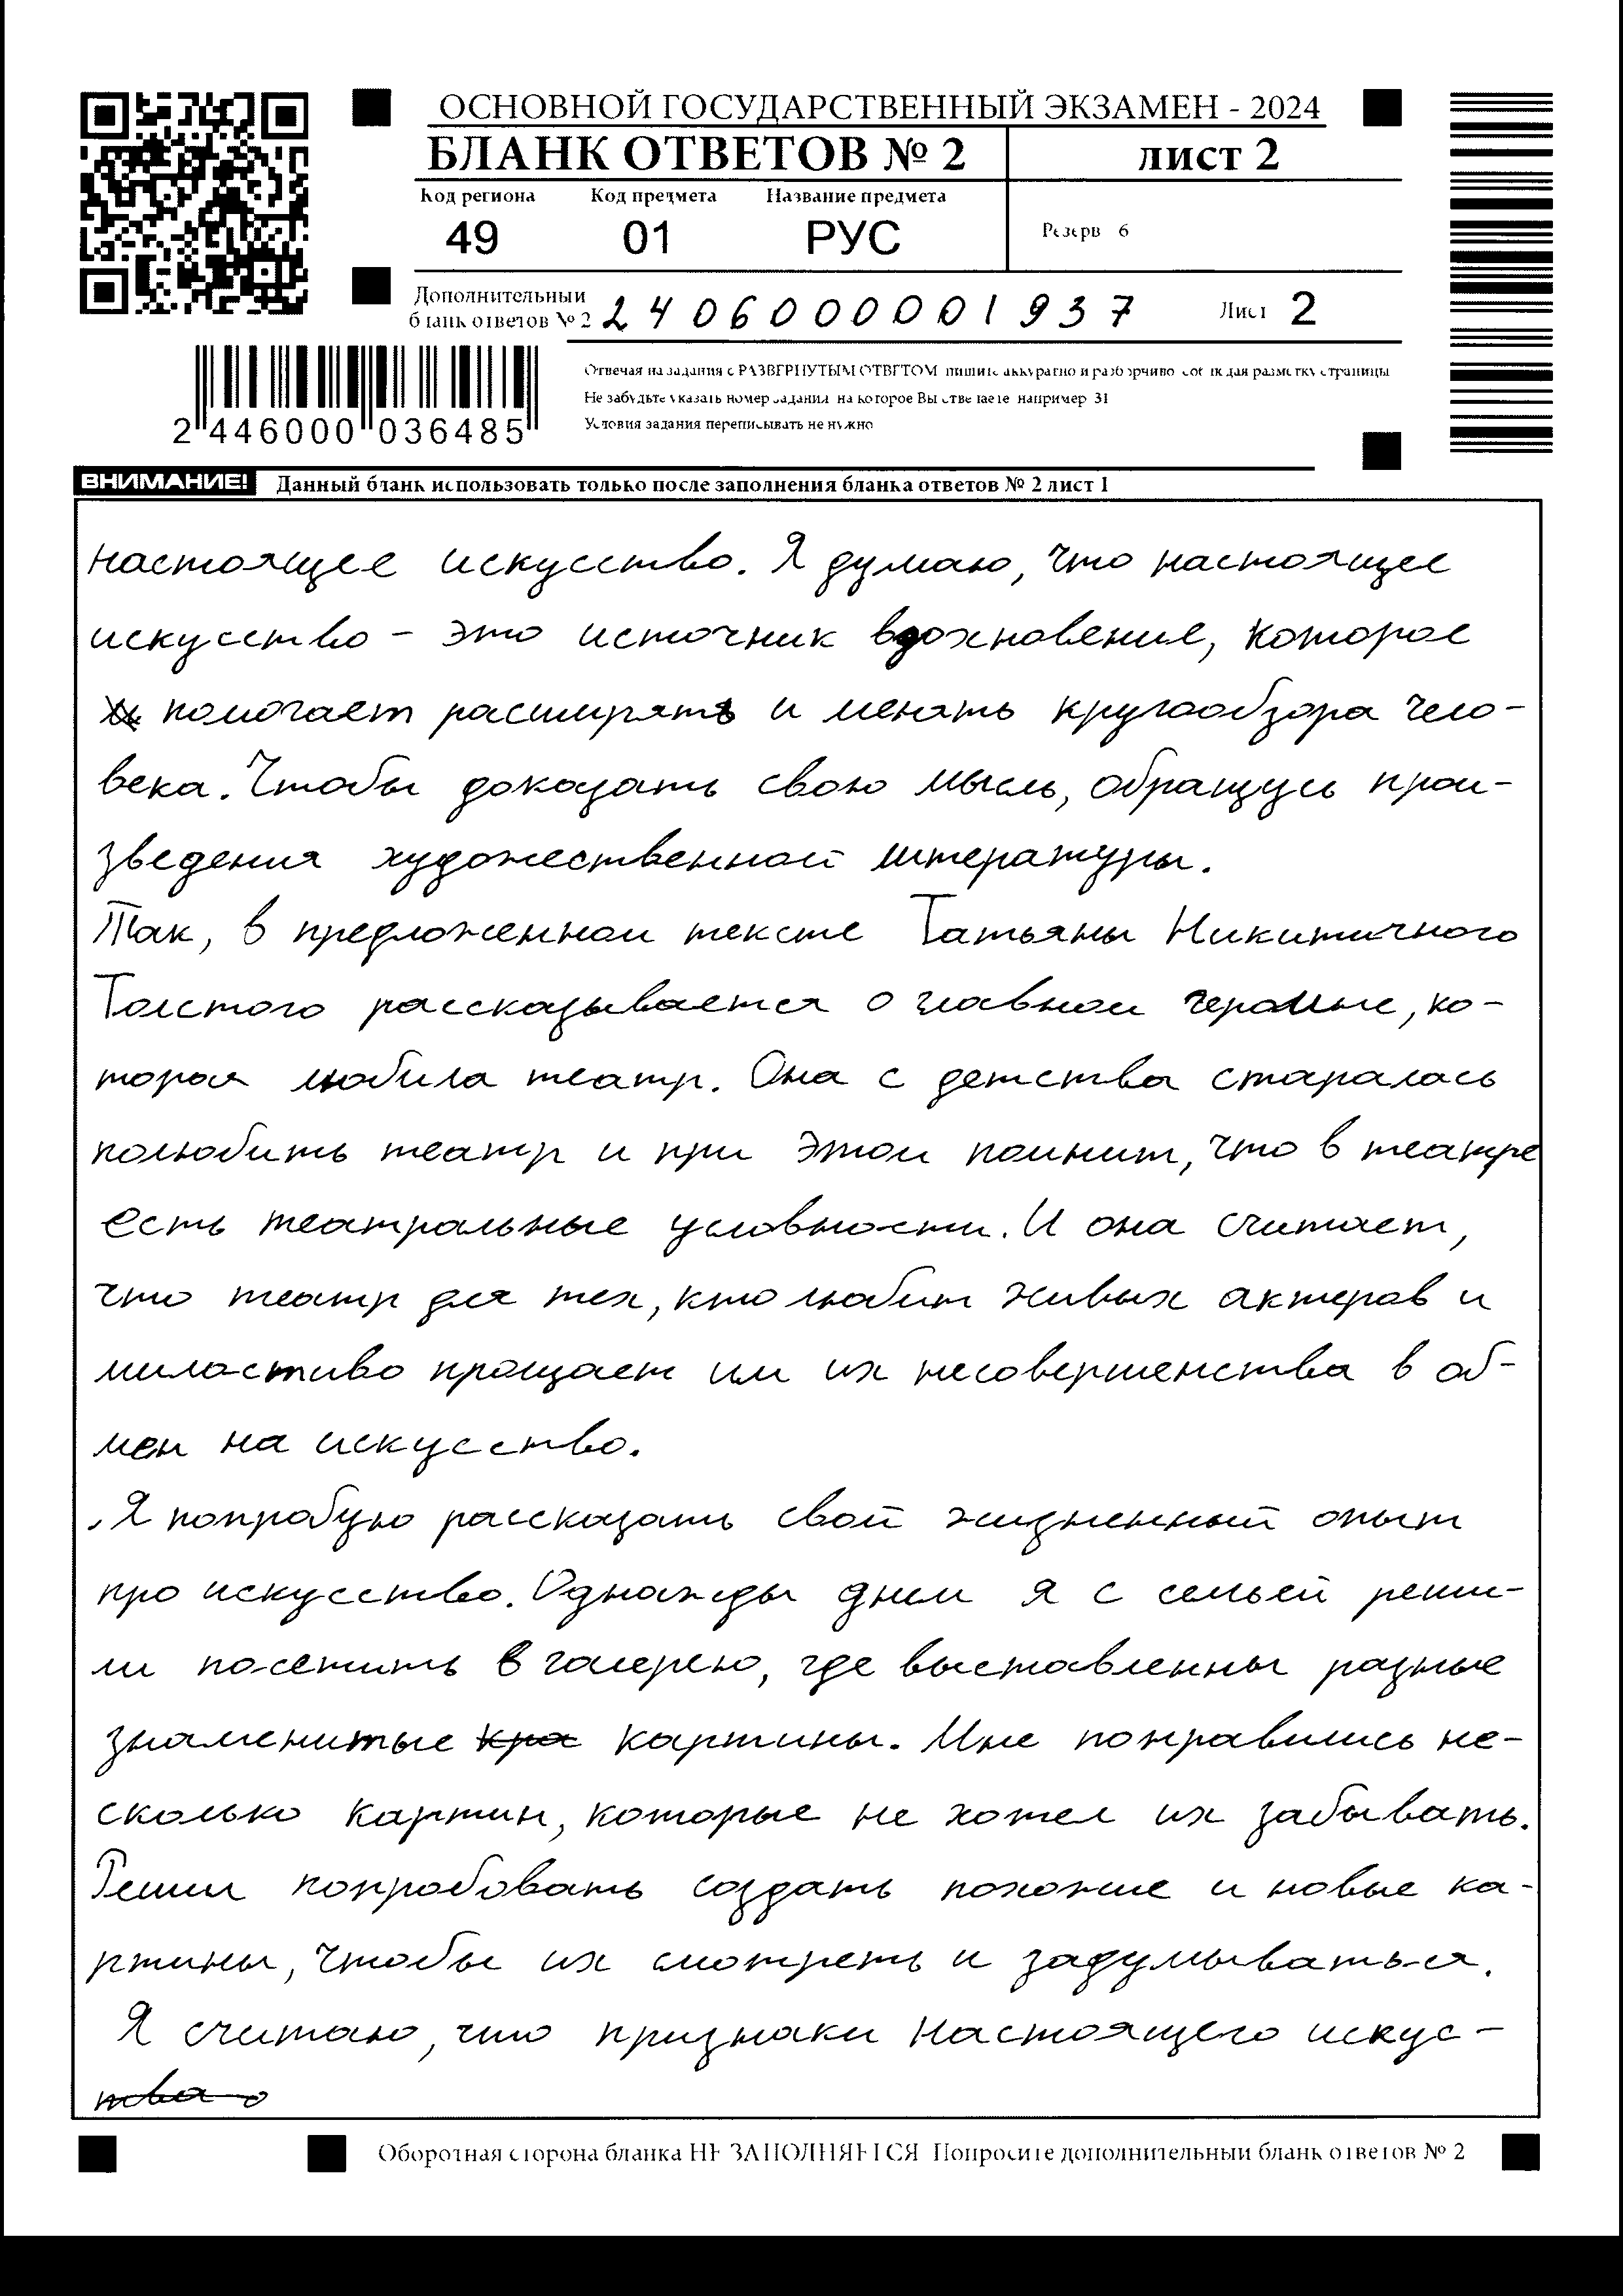 ОСНОВНОЙ ГОСУДАРСТВЕННЫЙ ЭКЗАМЕН - 2024
БЛАНК ОТВЕТОВ № 2
ЛИСТ 2
Код региона Код предмета Название предмета
49 01 РУС
Резерв 6
Дополнительный
бланк ответов № 2 2406000001937
Лист 2
Отвечая на задания с РАЗВЕРНУТЫМ ОТВЕТОМ, пишите аккуратно и разборчиво, соблюдая разметку страницы
Не забудьте указать номер задания, на которое Вы отвечаете, например 31
Условия задания переписывать не нужно
2 446000 036485
ВНИМАНИЕ! Данный бланк использовать только после заполнения бланка ответов № 2 лист 1
настоящее искусство. Я думаю, что настоящее
искусство - это источник вдохновение, которое
помогает расширять и менять кругообзора чело-
века. Чтобы доказать свою мысль, обращусь прои-
зведения художественной литературы.
Так, в предложенном тексте Татьяны Никитичного
Толстого рассказывается о главной героине, ко-
торая любила театр. Она с детства старалась
полюбить театр и при этом помнит, что в театре
есть театральные условности. И она считает,
что театр для тех, кто любит живых актеров и
миластиво прощает им их несовершенства в об-
мен на искусство.
Я попробую рассказать свой жизненный опыт
про искусство. Однажды днем я с семьей реши-
ли посетить в галерею, где выставленны разные
знаменитые кра картины. Мне понравились не-
сколько картин, которые не хотел их забывать.
Решил попробовать создать похожие и новые ка-
ртины, чтобы их смотреть и задумываться.
Я считаю, что признаки настоящего искус-
тва о
Оборотная сторона бланка НЕ ЗАПОЛНЯЕТСЯ Попросите дополнительный бланк ответов № 2